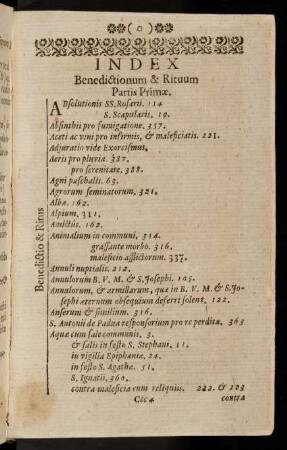 ( o )
INDEX
Benedictionum & Rituum
Partis Primæ.
ABsolutionis SS. Rosarii. 114
S. Scapularis, 19.
Absinthii pro fumigatione. 357.
Aceti ac vini pro infirmis, & maleficiatis. 221.
Adjuratio vide Exorcismus.
Aeris pro pluvia. 387.
pro serenitate. 388.
Agni paschalis. 63.
Agrorum seminatorum. 321.
Albæ. 162.
Alpium. 311.
Amictus. 162.
Animalium in communi, 314.
grassante morbo. 316.
maleficio afflictorum. 337.
Annuli nuptialis. 212.
Annulorum B. V. M. & S. Josephi. 105.
Annulorum, & armillarum, quæ in B. V. M. & S. Jo-
sephi æternum obsequium deferri solent. 122.
Anserum & similium. 316.
S. Antonii de Padua responsorium pro re perdita. 363
Aquæ cum sale communis. 3.
& salis in festo S. Stephani. 11.
in vigilia Epiphaniæ. 24.
in festo S. Agathæ. 51.
S. Ignatii. 360.
contra maleficia cum reliquiis. 222. & 223
Ccc 4 contra
Benedictio & Ritus